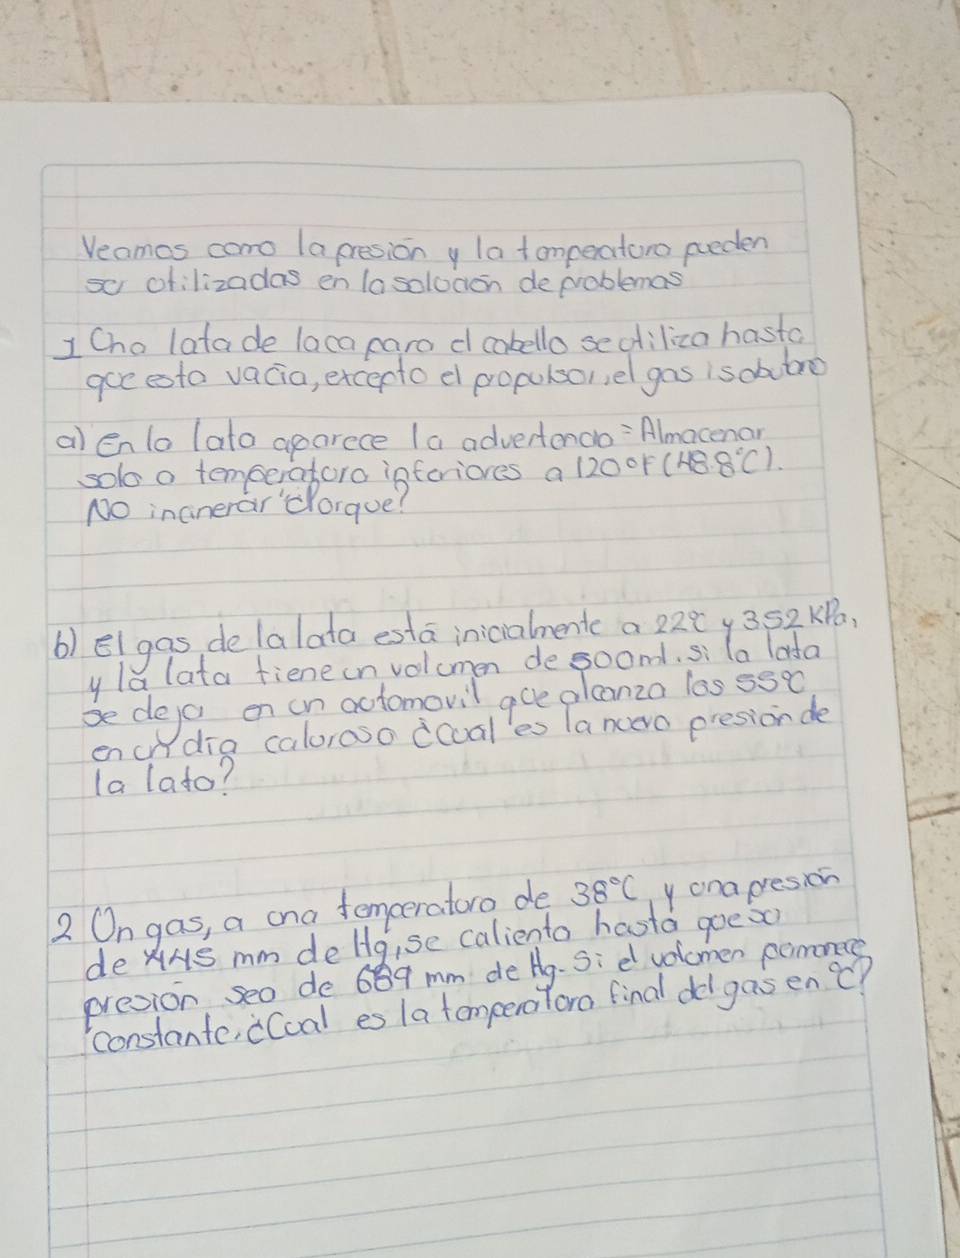 Veamos como la presión y la temperatura pueden
ser utilizadas en la solución de problemas
1 Una lata de laca para el cabello se utiliza hasta
que esta vacia, excepto el propulsor, el gas isobutano
a) en la lata aparece la advertencia = Almacenar
solo a temperatura inferiores a 120°F (48.8°C).
No incinerar ¿Porque?
b) El gas de la lata está inicialmente a 22°C y 352 KPa,
y la lata tiene un volumen de 500ml. si la lata
se deja en un automovil que alcanza los 55°C
en un dia caluroso ¿cual es la nueva presión de
la lata?
2 Un gas, a una temperatura de 38°C, y una presión
de 445 mm de Hg, se calienta hasta que su
presión sea de 689 mm de Hg. Si el volumen permanece
constante, ¿Cual es la temperatura final del gas en °C?